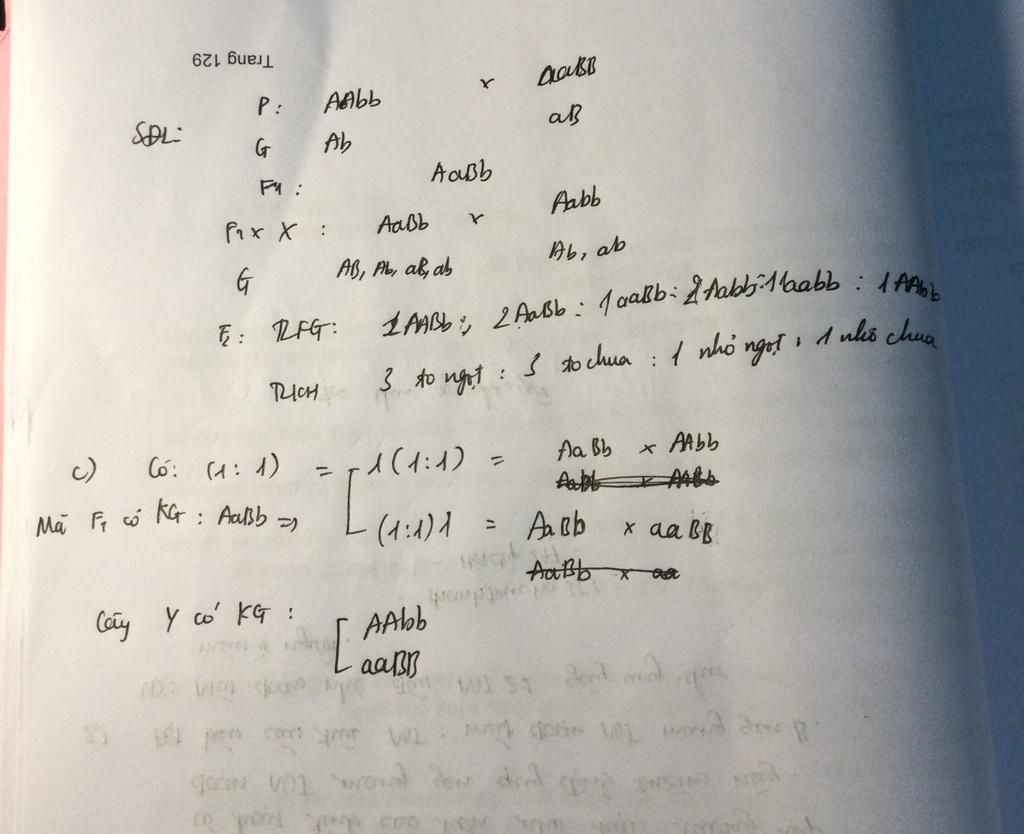 Trang 129
P: AAbb x aaBB
SĐL:
G Ab aB
F1: AaBb
F1 x X : AaBb x Aabb
G AB, Ab, aB, ab Ab, ab
F2: TLFG: 1AABb:, 2AaBb : 1aaBb : 2Aabb : 1aabb : 1AAbb
TLKH 3 to ngọt : 3 to chua : 1 nhỏ ngọt : 1 nhỏ chua
c) Có: (1:1) = 1(1:1) = AaBb x AAbb
Mà F1 có KG : AaBb => (1:1)1 = AaBb x aaBB
AaBb x aa
Cây Y có KG : AAbb
aaBB